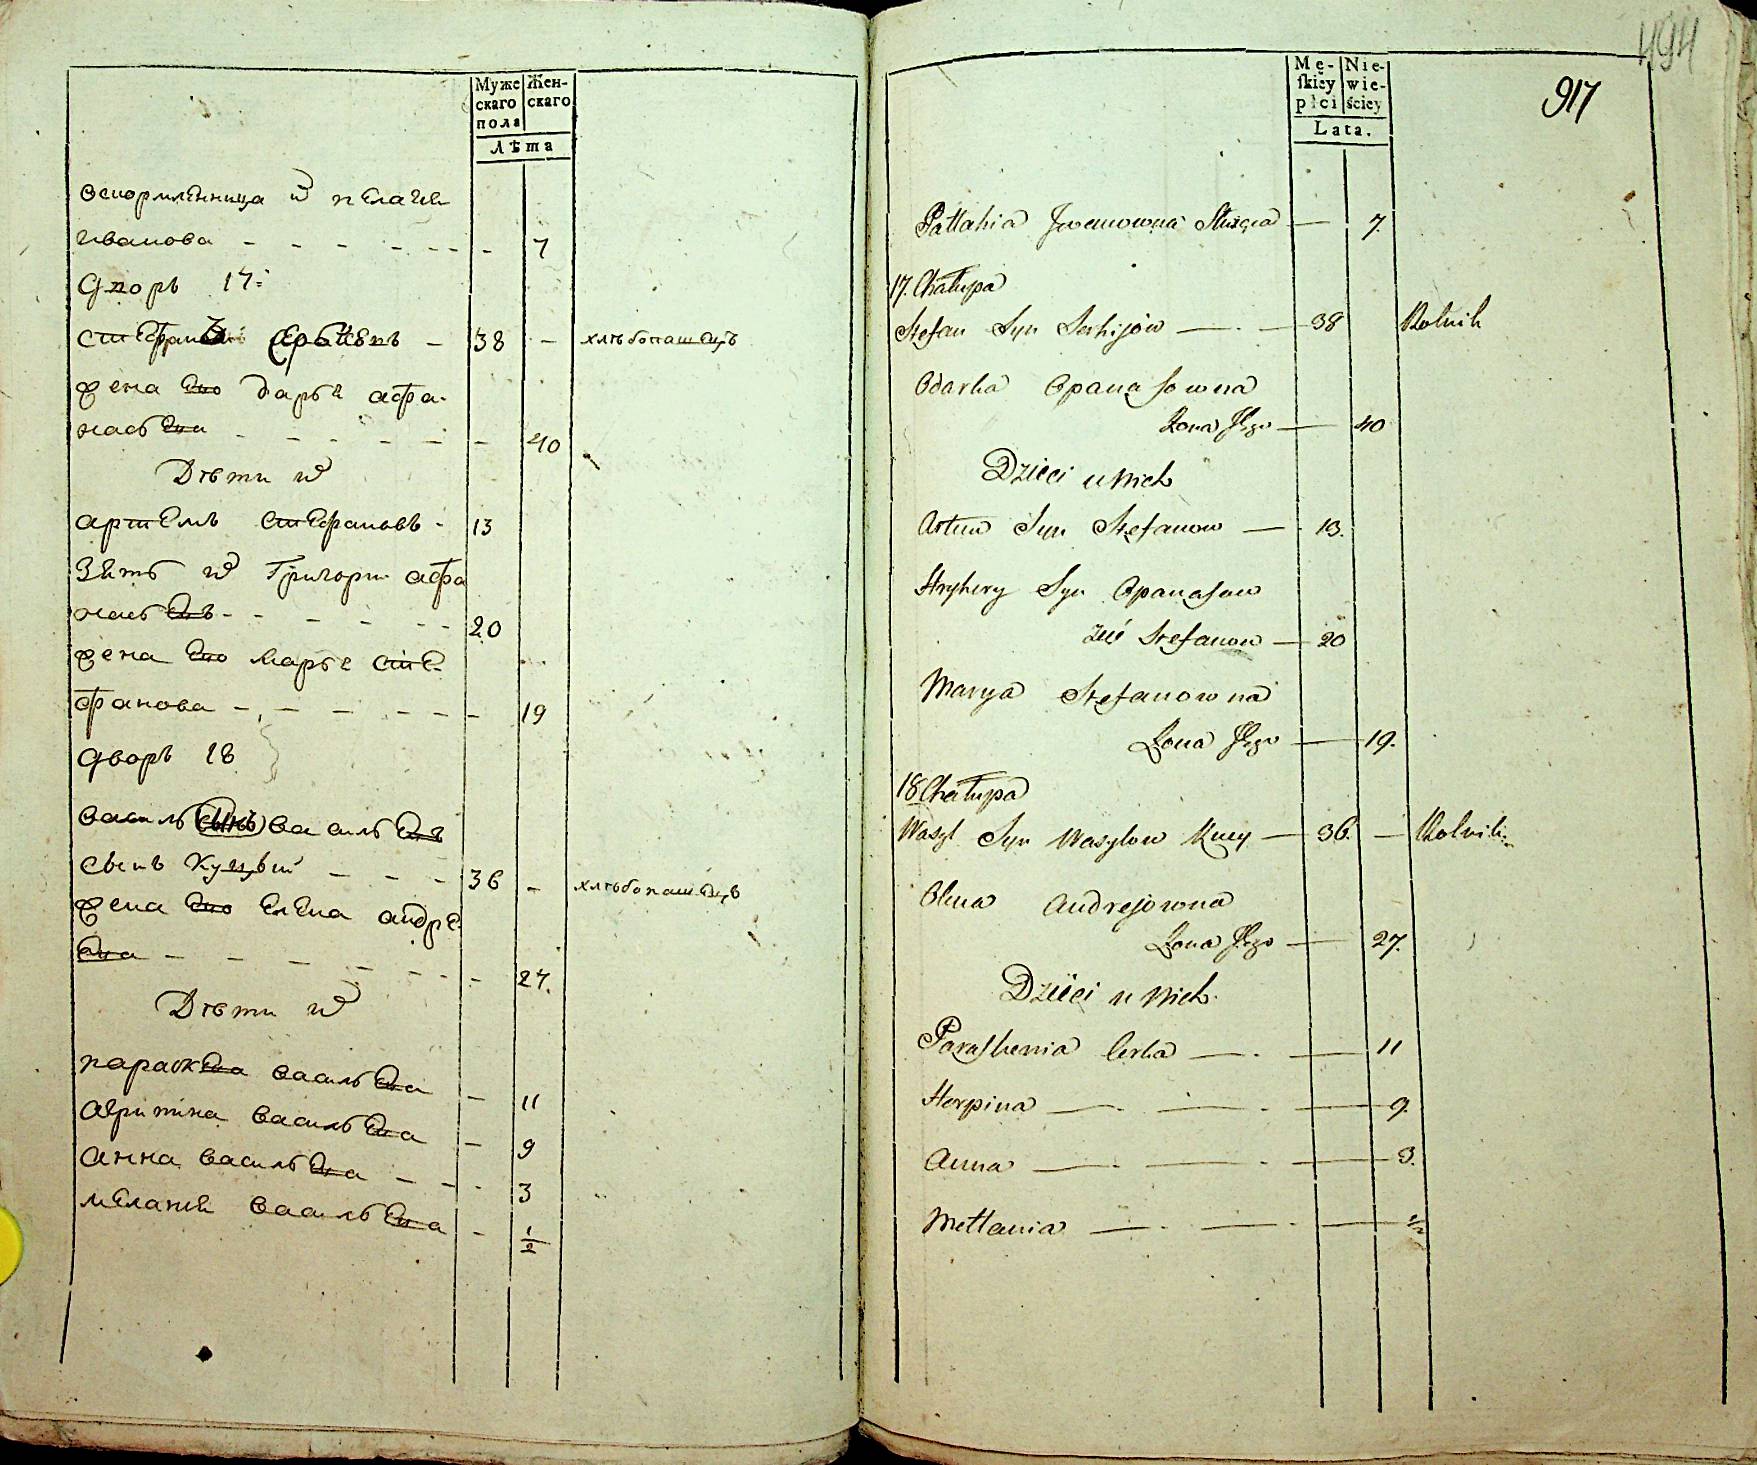 Муже
скаго
пола
Жен-
скаго
Лѣта
вскормленница их пелагея
иванова - - - - - - - 7
дворъ 17:
стефанъ сергѣевъ - 38 - хлѣбопашецъ
жена ево дарья афа-
насьева - - - - - - 40
Дѣти их
артемъ стефановъ - 13
Зять их Григори афа
насьевъ - - - - - 20
жена ево марья сте-
фанова - - - - - - 19
дворъ 18
василь сынъ васильевъ
сынъ куцый - - - 36 - хлѣбопашецъ
жена ево елена андре
ева - - - - - - - 27.
Дѣти их
параскева васильева - 11
агрипина васильева - 9
анна васильева - - - 3
мелания васильева - 1/2
494
917
Mę-
skiey
płci
Nie-
wie-
ściey
Lata.
Pałłahia Jwanowna Służąca — 7.
17. Chałupa
Stefan Syn Serhijów — . — 38 Rolnik
Odarka Opanasowna
Żona Jego — 40
Dzieci u Nich
Artem Syn Stefanow — 13.
Hryhery Syn Opanasow
Zięć Stefanow — 20
Marya Stefanowna
Żona Jego — 19.
18 Chałupa
Wasyl Syn Wasylow Kucy — 36. — Rolnik.
Olena Andrejowna
Żona Jego — 27.
Dzieci u Nich.
Paraskewia Corka — . — 11
Horpina — . — . — 9.
Anna — . — . — 3.
Mełłania — . — . — 1/2